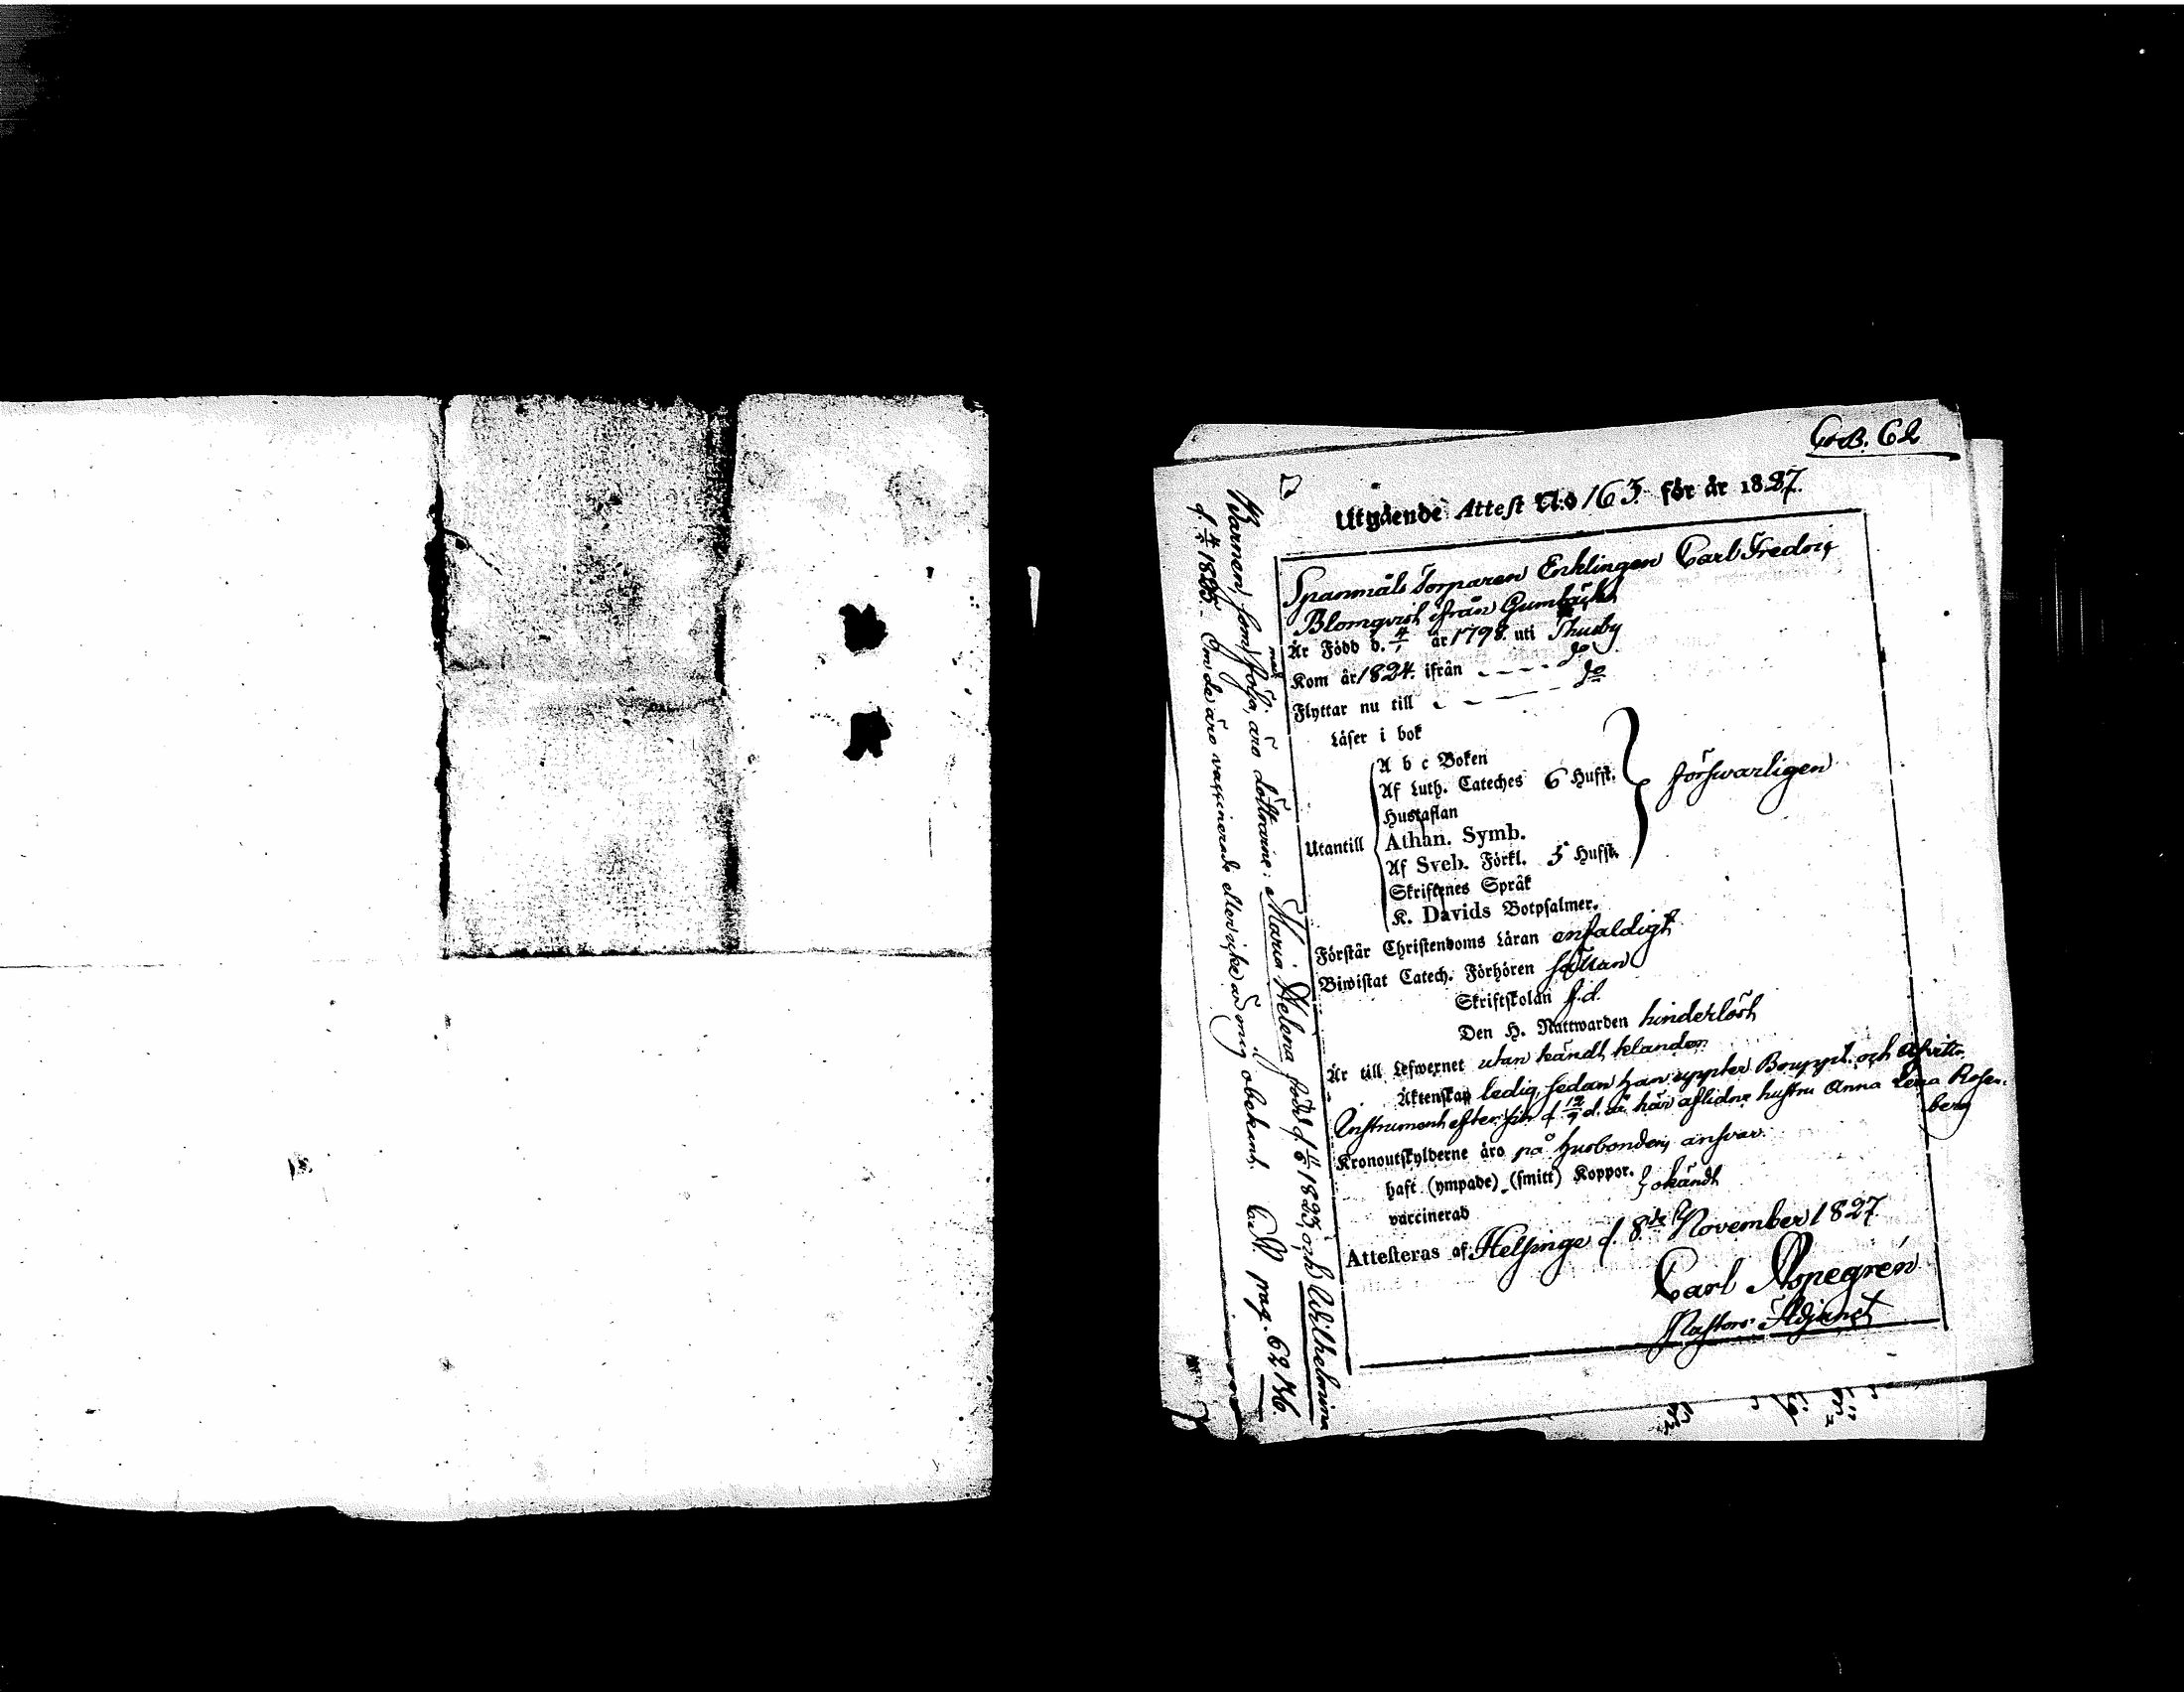 Utgående Attest N:o 163. för år 1827.
Spanmåls Torparen Enklingen Carl Fredric
Blomqvist ifrån Gumbäcka
Är Född d. 4/1 år 1798. uti Thusby
Kom år 1824. ifrån - - - - do
Flyttar nu till - - - do
Läser i bok
A b c Boken
Af Luth. Cateches 6 Hufst.
förswarligen
Hustaflan
Utantill
Athan. Symb.
Af Sveb. Förkl. 5 Hufst.
Skriftenes Språk
K. Davids Botpsalmer.
Förstår Christendoms Läran enfaldigt
Biwistat Catech. Förhören sällan
Skriftskolan f.d.
Den H. Nattwarden hinderlöst
Är till Lefwernet utan kändt klander
Äktenskap ledig, sedan han uppter Bouppt. och Afvittr.
Instrument efter sin d. 12/9 d. år här aflidne hustru Anna Lena Rosen-
berg
Kronoutskylderne äro på husbondens ansvar.
haft (ympade) (smitt) Koppor.
okändt
vaccinerad
Attesteras af Helsinge d. 8de November 1827.
Carl Aspegrén
Pastors Adjunct
Barnen som medfölja, äro döttrarne: Maria Helena född d. 1823, och Wilhelmina
d. 1825. Om de äro vaccinerade eller icke är mig obekant. pag. 62.